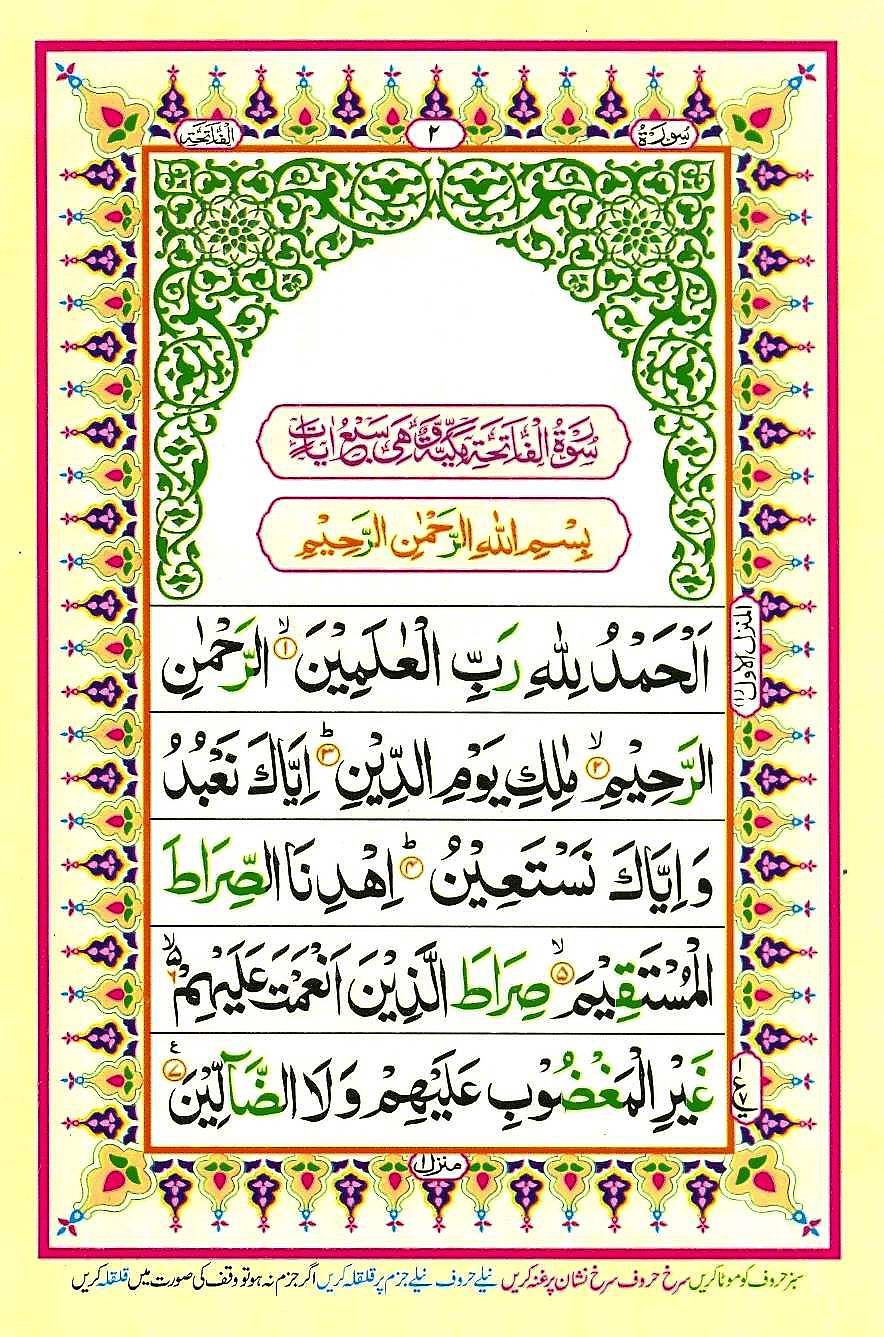 سورة ٢ الفاتحة
سُوْرَةُ الْفَاتِحَةِ مَكِّيَّةٌ وَّهِيَ سَبْعُ اٰيَاتٍ
بِسْمِ اللّٰهِ الرَّحْمٰنِ الرَّحِيْمِ
اَلْحَمْدُ لِلّٰهِ رَبِّ الْعٰلَمِيْنَ ۙ﴿۱﴾ الرَّحْمٰنِ
المنزل الاول ﴿۱﴾
الرَّحِيْمِ ۙ﴿۲﴾ مٰلِكِ يَوْمِ الدِّيْنِ ؕ﴿۳﴾ اِيَّاكَ نَعْبُدُ
وَ اِيَّاكَ نَسْتَعِيْنُ ؕ﴿۴﴾ اِهْدِنَا الصِّرَاطَ
الْمُسْتَقِيْمَ ۙ﴿۵﴾ صِرَاطَ الَّذِيْنَ اَنْعَمْتَ عَلَيْهِمْ ۙ۵ ﴿۶﴾
غَيْرِ الْمَغْضُوْبِ عَلَيْهِمْ وَلَا الضَّآلِّيْنَ ﴿۷﴾ ع
منزل ۱
سبز حروف کو موٹا کریں سرخ حروف سرخ نشان پر غنہ کریں نیلے حروف نیلے جزم پر قلقلہ کریں اگر جزم نہ ہو تو وقف کی صورت میں قلقلہ کریں